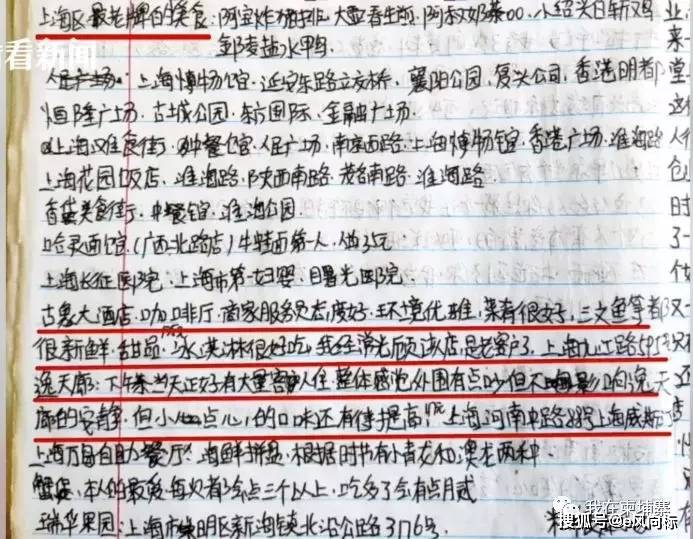 上海区最老牌的美食:阿宝炸猪排.大壶春生煎.阿叔奶茶00.小绍兴白斩鸡
盐水鸭
人民广场.上海博物馆.延安东路立交桥.襄阳公园.复兴公司.香港明都
恒隆广场.古城公园.东方国际.金融广场.
上海美食街.中餐馆.人民广场.南京西路.上海博物馆.香港广场.淮海路
上海花园饭店.淮海路.陕西南路.茂名南路.淮海路.
美食街.中餐馆.淮海公园.
哈灵面馆.(广西北路店)牛蛙面第一人.
上海长征医院.上海市第一妇婴.曙光医院.
古象大酒店.咖啡厅.商家服务员态度好.环境优雅.菜肴很好.三文鱼等都
很新鲜.甜品.冰淇淋很好吃.我经常光顾该店.是老客户了.上海九江路595
逸天廊:下午茶当天正好有大量客人入住.整体感觉外围有点吵但不影响逸天
廊的安静.但小点心的口味还有待提高.上海河南中路 号上海威斯
上海万豪自助餐厅:海鲜拼盘.根据时节有小青龙和澳龙两种
蟹 .本人的最爱.每次有 会点三个以上.吃多了会有点月贰
瑞华果园:上海市崇明区新海镇北沿公路3176号.
看新闻
我在柬埔寨
搜狐号@ 风向标
业
来
堂
人
仓
时
了
一